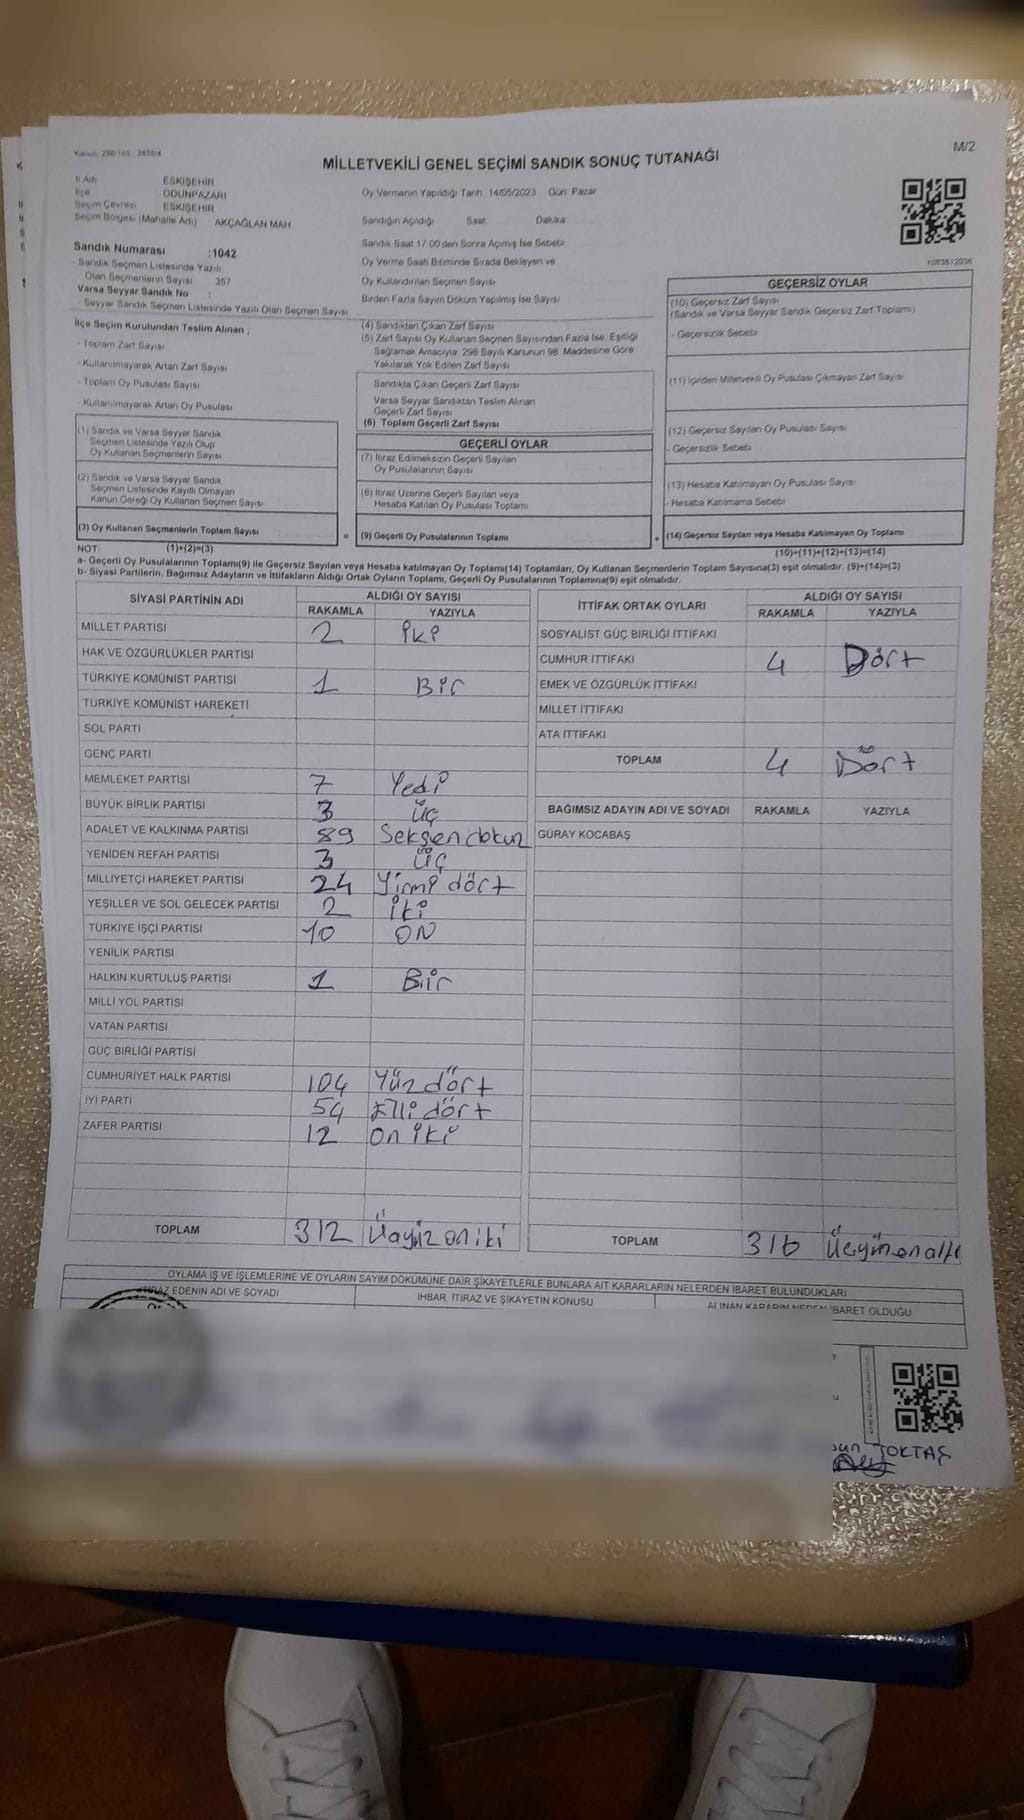 MİLLETVEKİLİ GENEL SEÇİMİ SANDIK SONUÇ TUTANAĞI
M/2
İl Adı ESKİŞEHİR
İlçe ODUNPAZARI
Seçim Çevresi ESKİŞEHİR
Seçim Bölgesi (Mahalle Adı) AKÇAĞLAN MAH
Sandık Numarası :1042
Sandık Seçmen Listesinde Yazılı
Olan Seçmenlerin Sayısı 357
Varsa Seyyar Sandık No :
Seyyar Sandık Seçmen Listesinde Yazılı Olan Seçmen Sayısı
İlçe Seçim Kurulundan Teslim Alınan ;
- Toplam Zarf Sayısı
- Kullanılmayarak Artan Zarf Sayısı
- Toplam Oy Pusulası Sayısı
- Kullanılmayarak Artan Oy Pusulası
(1) Sandık ve Varsa Seyyar Sandık
Seçmen Listesinde Yazılı Olup
Oy Kullanan Seçmenlerin Sayısı
(2) Sandık ve Varsa Seyyar Sandık
Seçmen Listesinde Kayıtlı Olmayan
Kanun Gereği Oy Kullanan Seçmen Sayısı
(3) Oy Kullanan Seçmenlerin Toplam Sayısı
Oy Vermenin Yapıldığı Tarih 14/05/2023 Gün: Pazar
Sandığın Açıldığı Saat Dakika
Sandık Saat 17:00'den Sonra Açılmış İse Sebebi
Oy Verme Saati Bitiminde Sırada Bekleyen ve
Oy Kullandırılan Seçmen Sayısı
Birden Fazla Sayım Döküm Yapılmış İse Sayısı
(4) Sandıktan Çıkan Zarf Sayısı
(5) Zarf Sayısı Oy Kullanan Seçmen Sayısından Fazla İse, Eşitliği
Sağlamak Amacıyla, 298 Sayılı Kanunun 98. Maddesine Göre
Yakılarak Yok Edilen Zarf Sayısı
Sandıkta Çıkan Geçerli Zarf Sayısı
Varsa Seyyar Sandıktan Teslim Alınan
Geçerli Zarf Sayısı
(6) Toplam Geçerli Zarf Sayısı
GEÇERLİ OYLAR
(7) İtiraz Edilmeksizin Geçerli Sayılan
Oy Pusulalarının Sayısı
(8) İtiraz Üzerine Geçerli Sayılan veya
Hesaba Katılan Oy Pusulası Toplamı
= (9) Geçerli Oy Pusulalarının Toplamı
GEÇERSİZ OYLAR
(10) Geçersiz Zarf Sayısı
(Sandık ve Varsa Seyyar Sandık Geçersiz Zarf Toplamı)
- Geçersizlik Sebebi
(11) İçinden Milletvekili Oy Pusulası Çıkmayan Zarf Sayısı
(12) Geçersiz Sayılan Oy Pusulası Sayısı
- Geçersizlik Sebebi
(13) Hesaba Katılmayan Oy Pusulası Sayısı
- Hesaba Katılmama Sebebi
+ (14) Geçersiz Sayılan veya Hesaba Katılmayan Oy Toplamı
NOT: (1)+(2)=(3) (10)+(11)+(12)+(13)=(14)
a- Geçerli Oy Pusulalarının Toplamı(9) ile Geçersiz Sayılan veya Hesaba katılmayan Oy Toplamı(14) Toplamları, Oy Kullanan Seçmenlerin Toplam Sayısına(3) eşit olmalıdır. (9)+(14)=(3)
b- Siyasi Partilerin, Bağımsız Adayların ve İttifakların Aldığı Ortak Oyların Toplamı, Geçerli Oy Pusulalarının Toplamına(9) eşit olmalıdır.
SİYASİ PARTİNİN ADI ALDIĞI OY SAYISI
RAKAMLA YAZIYLA
MİLLET PARTİSİ 2 İki
HAK VE ÖZGÜRLÜKLER PARTİSİ
TÜRKİYE KOMÜNİST PARTİSİ 1 Bir
TÜRKİYE KOMÜNİST HAREKETİ
SOL PARTİ
GENÇ PARTİ
MEMLEKET PARTİSİ 7 Yedi
BÜYÜK BİRLİK PARTİSİ 3 Üç
ADALET VE KALKINMA PARTİSİ 89 Seksen dokuz
YENİDEN REFAH PARTİSİ 3 Üç
MİLLİYETÇİ HAREKET PARTİSİ 24 Yirmi dört
YEŞİLLER VE SOL GELECEK PARTİSİ 2 İki
TÜRKİYE İŞÇİ PARTİSİ 10 ON
YENİLİK PARTİSİ
HALKIN KURTULUŞ PARTİSİ 1 Bir
MİLLİ YOL PARTİSİ
VATAN PARTİSİ
GÜÇ BİRLİĞİ PARTİSİ
CUMHURİYET HALK PARTİSİ 104 Yüz dört
İYİ PARTİ 54 Elli dört
ZAFER PARTİSİ 12 on iki
TOPLAM 312 Üçyüz on iki
İTTİFAK ORTAK OYLARI ALDIĞI OY SAYISI
RAKAMLA YAZIYLA
SOSYALİST GÜÇ BİRLİĞİ İTTİFAKI
CUMHUR İTTİFAKI 4 Dört
EMEK VE ÖZGÜRLÜK İTTİFAKI
MİLLET İTTİFAKI
ATA İTTİFAKI
TOPLAM 4 Dört
BAĞIMSIZ ADAYIN ADI VE SOYADI RAKAMLA YAZIYLA
GÜRAY KOCABAŞ
TOPLAM 316 Üçyüz on altı
OYLAMA İŞ VE İŞLEMLERİNE VE OYLARIN SAYIM DÖKÜMÜNE DAİR ŞİKAYETLERLE BUNLARA AİT KARARLARIN NELERDEN İBARET BULUNDUKLARI
İTİRAZ EDENİN ADI VE SOYADI İHBAR, İTİRAZ VE ŞİKAYETİN KONUSU ALINAN KARARIN NEDEN İBARET OLDUĞU
TOKTAŞ